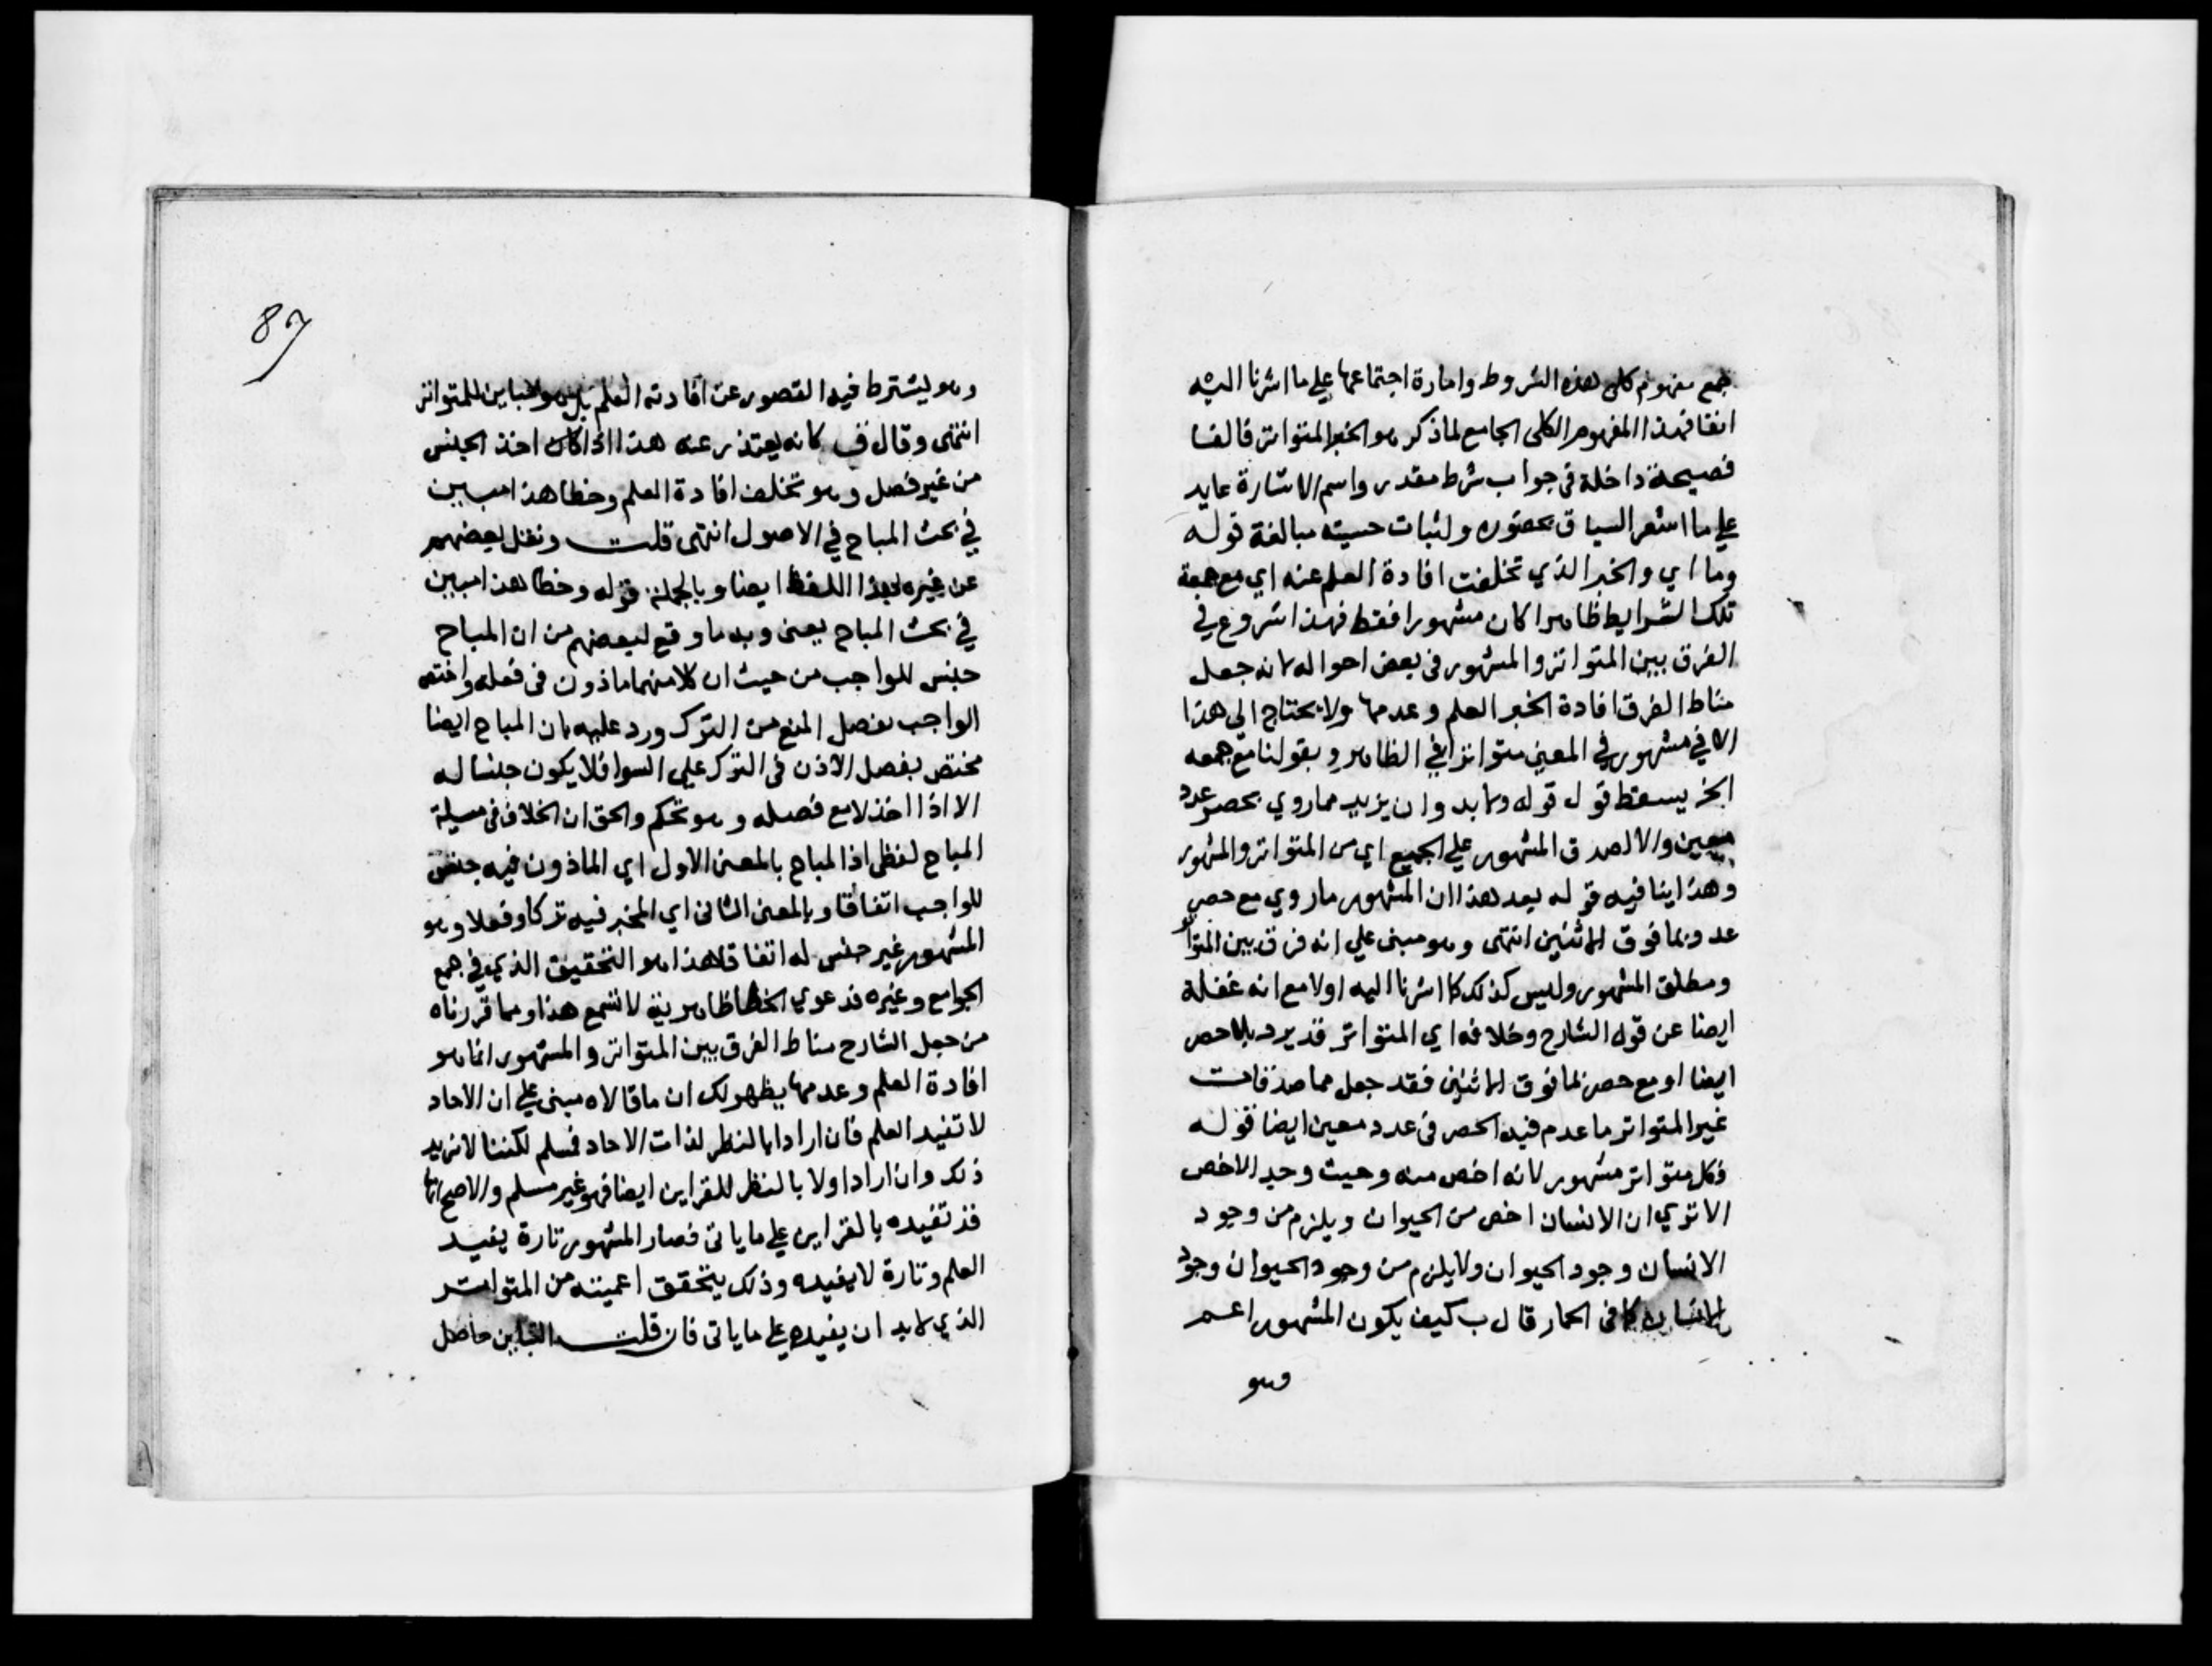 جمع مفهوم كلي هذه الشروط وامارة اجتماعها علي ما اشرنا اليه
انفا فهذا المفهوم الكلي الجامع لما ذكر هو الخبر المتواتر فالفا
فصيحة داخلة في جواب شرط مقدر واسم الاشارة عايد
علي ما اشعر السياق بحضوره ولثبات حسيته مبالغة قوله
وما اي والخبر الذي تخلفت افادة العلم عنه اي مع جمعه
تلك الشرايط ظاهرا كان مشهورا فقط فهذا شروع في
الفرق بين المتواتر والمشهور في بعض احواله لانه جعل
مناط الفرق افادة الخبر العلم وعدمها ولا يحتاج الي هذا
الا في مشهور في المعين متواترا في الظاهر وبقولنا مع جمعه
الخ يسقط قول قوله ولابد وان يزيد مما روي بحصر عدد
معين والا لصدق المشهور علي الجميع اي من المتواتر والمشهور
وهذا ينافيه قوله بعد هذا ان المشهور ما روي مع حصر
عدد بما فوق الاثنين انتهى وهو مبني علي انه فرق بين المتواتر
ومطلق المشهور وليس كذلك كما اشرنا اليه اولا مع انه غفلة
ايضا عن قول الشارح وخلافه اي المتواتر قد يرد بلا حصر
ايضا او مع حصر بما فوق الاثنين فقد جعل مما صدقات
غير المتواتر ما عدم فيه الحصر في عدد معين ايضا قوله
فكل متواتر مشهور لانه اخص منه وحيث وجد الاخص
الا تري ان الانسان اخص من الحيوان ويلزم من وجود
الانسان وجود الحيوان ولا يلزم من وجود الحيوان وجود
الانسان كما في الحمار قال ب كيف يكون المشهور اعم
وهو
87
وهو يشترط فيه القصور عن افادته العلم بل هو مباين للمتواتر
انتهى وقال ق كانه يعتذر عنه هذا اذا كان اخذ الجنس
من غير فصل وهو تخلف افادة العلم وخطا هذا مبين
في بحث المباح في الاصول انتهى قلت ونقل بعضهم
عن غيره بهذا اللفظ ايضا وبالجملة قوله وخطا هذا مبين
في بحث المباح يعني وبه ما وقع لبعضهم من ان المباح
جنس للواجب من حيث ان كلا منهما ماذون في فعله واختص
الواجب بفصل المنع من الترك ورد عليه بان المباح ايضا
مختص بفصل الاذن في الترك علي السوا فلا يكون جنسا له
الا اذا اخذ لا مع فصله وهو تحكم والحق ان الخلاف في مسيلة
المباح لفظي اذ المباح بالمعني الاول اي الماذون فيه جنس
للواجب اتفاقا وبالمعني الثاني اي المخير فيه تركا وفعلا وهو
المشهور غير جنس له اتفاقا هذا هو التحقيق الذي في جمع
الجوامع وغيره فدعوي الخطا ظاهرية لا تسمع هذا ومما قررناه
من جعل الشارح مناط الفرق بين المتواتر والمشهور انما هو
افادة العلم وعدمها يظهر لك ان ما قالاه مبني علي ان الاحاد
لا تفيد العلم فان ارادا بالنظر لذات الاحاد فمسلم لكننا لا نريد
ذلك وان ارادا ولا بالنظر للقراين ايضا فهو غير مسلم والاصح انها
قد تفيده بالقراين علي ما ياتي فصار المشهور تارة يفيد
العلم وتارة لا يفيده وذلك يتحقق اعميته من المتواتر
الذي لابد ان يفيده علي ما ياتي فان قلت التباين حاصل